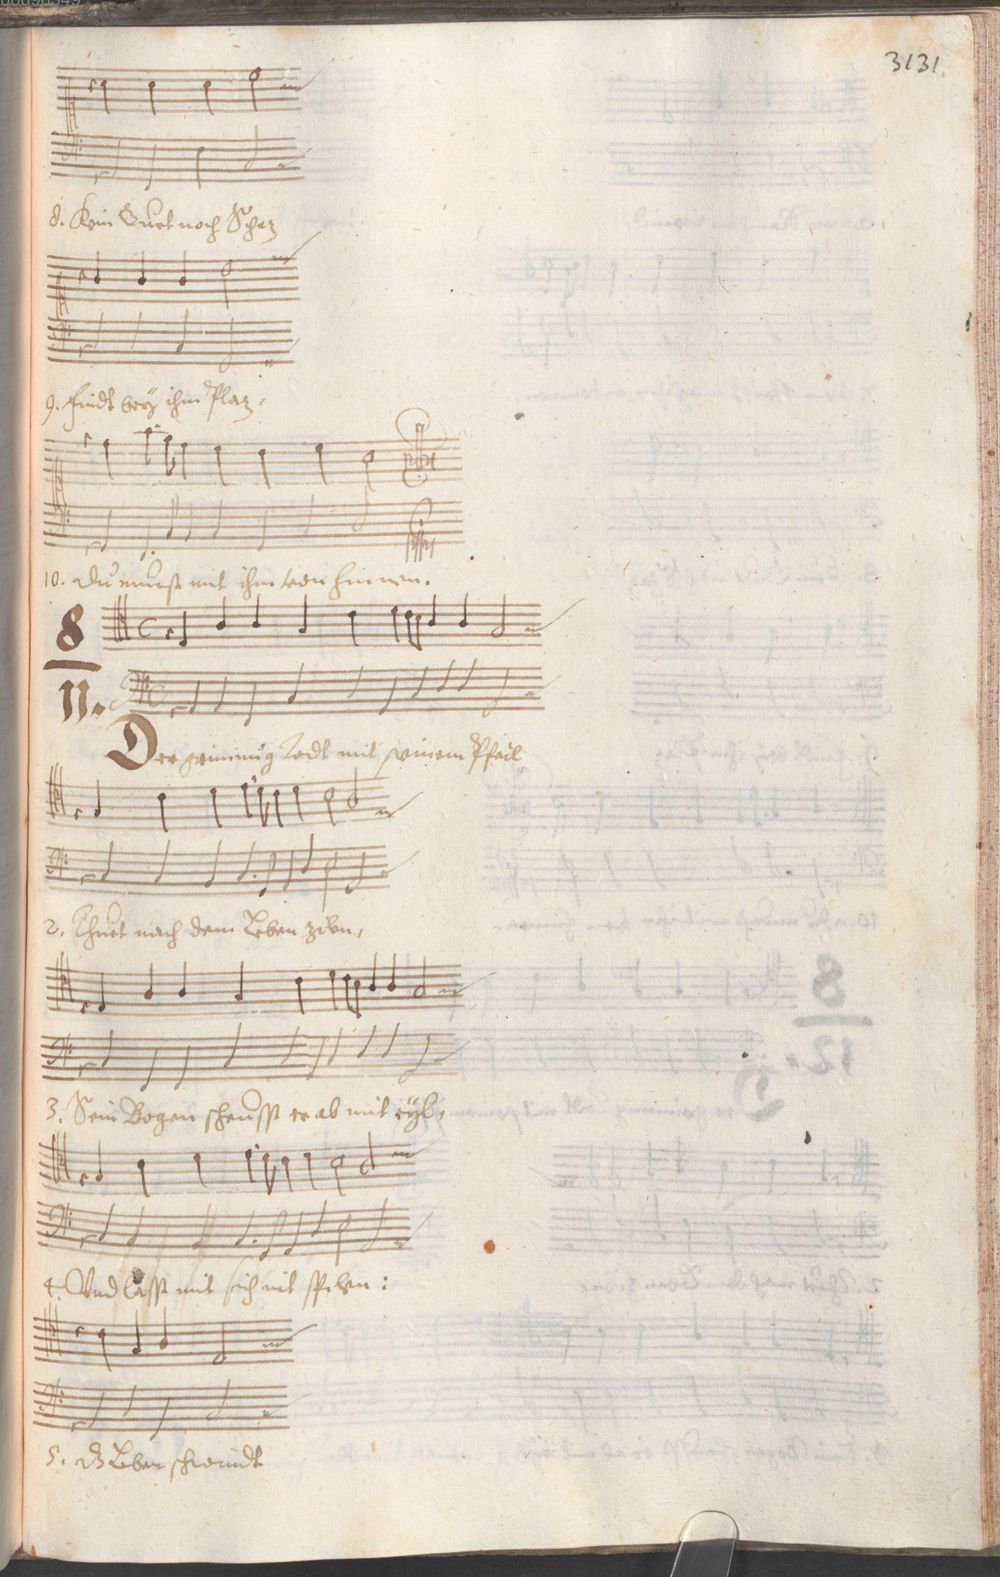 3131.
8. Kein Guet noch Schaz
9. Findt bey ihm Plaz,
10. Du muest mit ihm von hinnen.
8
11.
Der grimmig Todt mit seinem Pfeil
2. Thuet nach dem Leben zihln,
3. Sein Bogen scheusst er ab mit eyl,
4. Und lasst mit sich nit spilen:
5. Leben schwindt